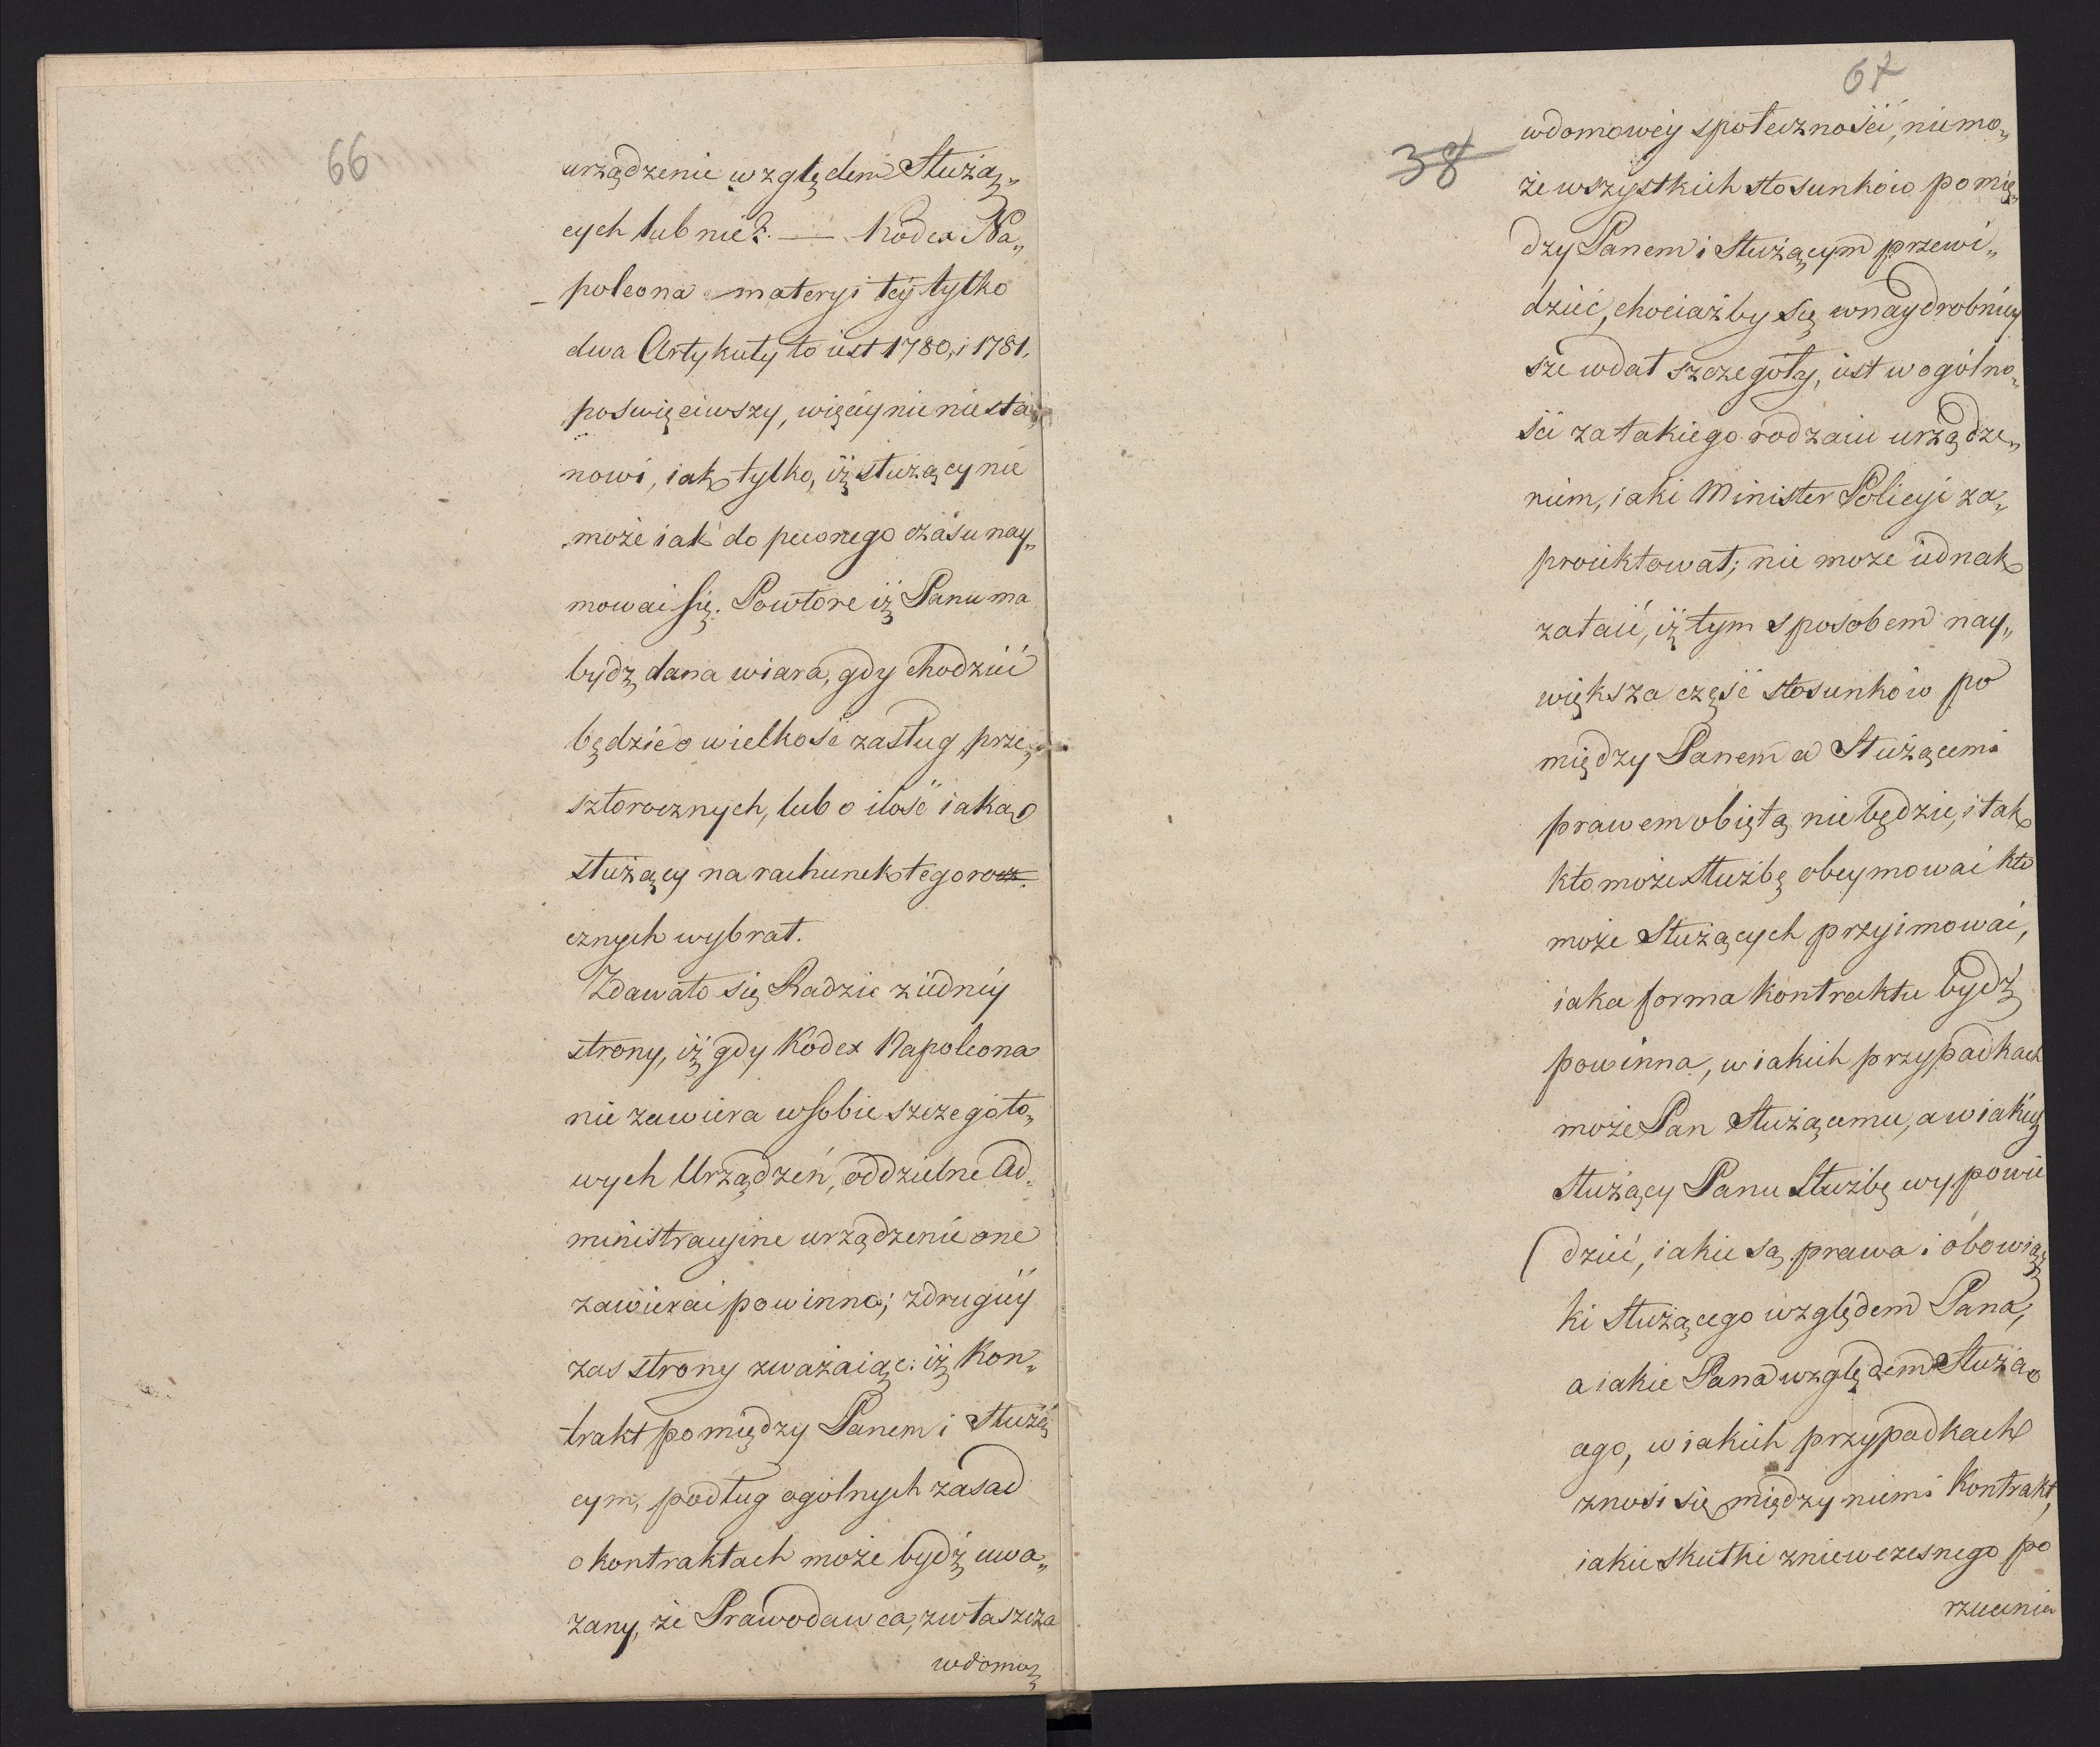 66
urządzenie względem Służą„
cych lub nie?. — Kodex Na„
poleona materyi tey tylko
dwa Artykuły to iest 1780, i 1781.
poswięciwszy, więcey nic niesta„
nowi, iak tylko, iż służący nie
może iak do pewnego czasu nay„
mować się. Powtóre iż Panu ma
bydź dana wiara, gdy chodzić
będzie o wielkość zasług prze„
szłorocznych, lub o ilość iaką
służący na rachunek tegorocz
cznych wybrał.
Zdawało się Radzie z iedney
strony, iż gdy Kodex Napoleona
nie zawiera w sobie szczegóło„
wych Urządzeń, oddzielne Ad„
ministracyine urządzenie one
zawierać powinno; z drugiéy
zas strony zważaiąc: iż Kon„
trakt pomiędzy Panem i Służą„
cym, podług ogólnych zasad
o kontraktach może bydź uwa„
żany, że Prawodawca, zwłaszcza
w domo„
67
38
w domowéy społeczności, niemo„
że wszystkich stosunków pomię„
dzy Panem i Służącym przewi„
dzieć, chociażby się w naydrobniey
sze wdał szczegóły, iest w ogólno„
ści za takiego rodzaiu urządze„
niem, iaki Minister Policyi za„
proiektował; nie może iednak
zataić, iż tym sposobem nay„
większa część stosunków po
między Panem a Służącemi
prawem obiętą nie będzie, i tak
kto może służbę obeymować kto
może Służących przyimować,
iaka forma kontraktu bydź
powinna, w iakich przypadkach
może Pan Służącemu, a w iakich
Służący Panu Służbę wypowie
dzieć, iakie są prawa i obowiąz„
ki Służącego względem Pana,
a iakie Pana względem Służą„
cego, w iakich przypadkach
znosi się między niemi Kontrakt,
iakie skutki z niewczesnego po
rzucenia